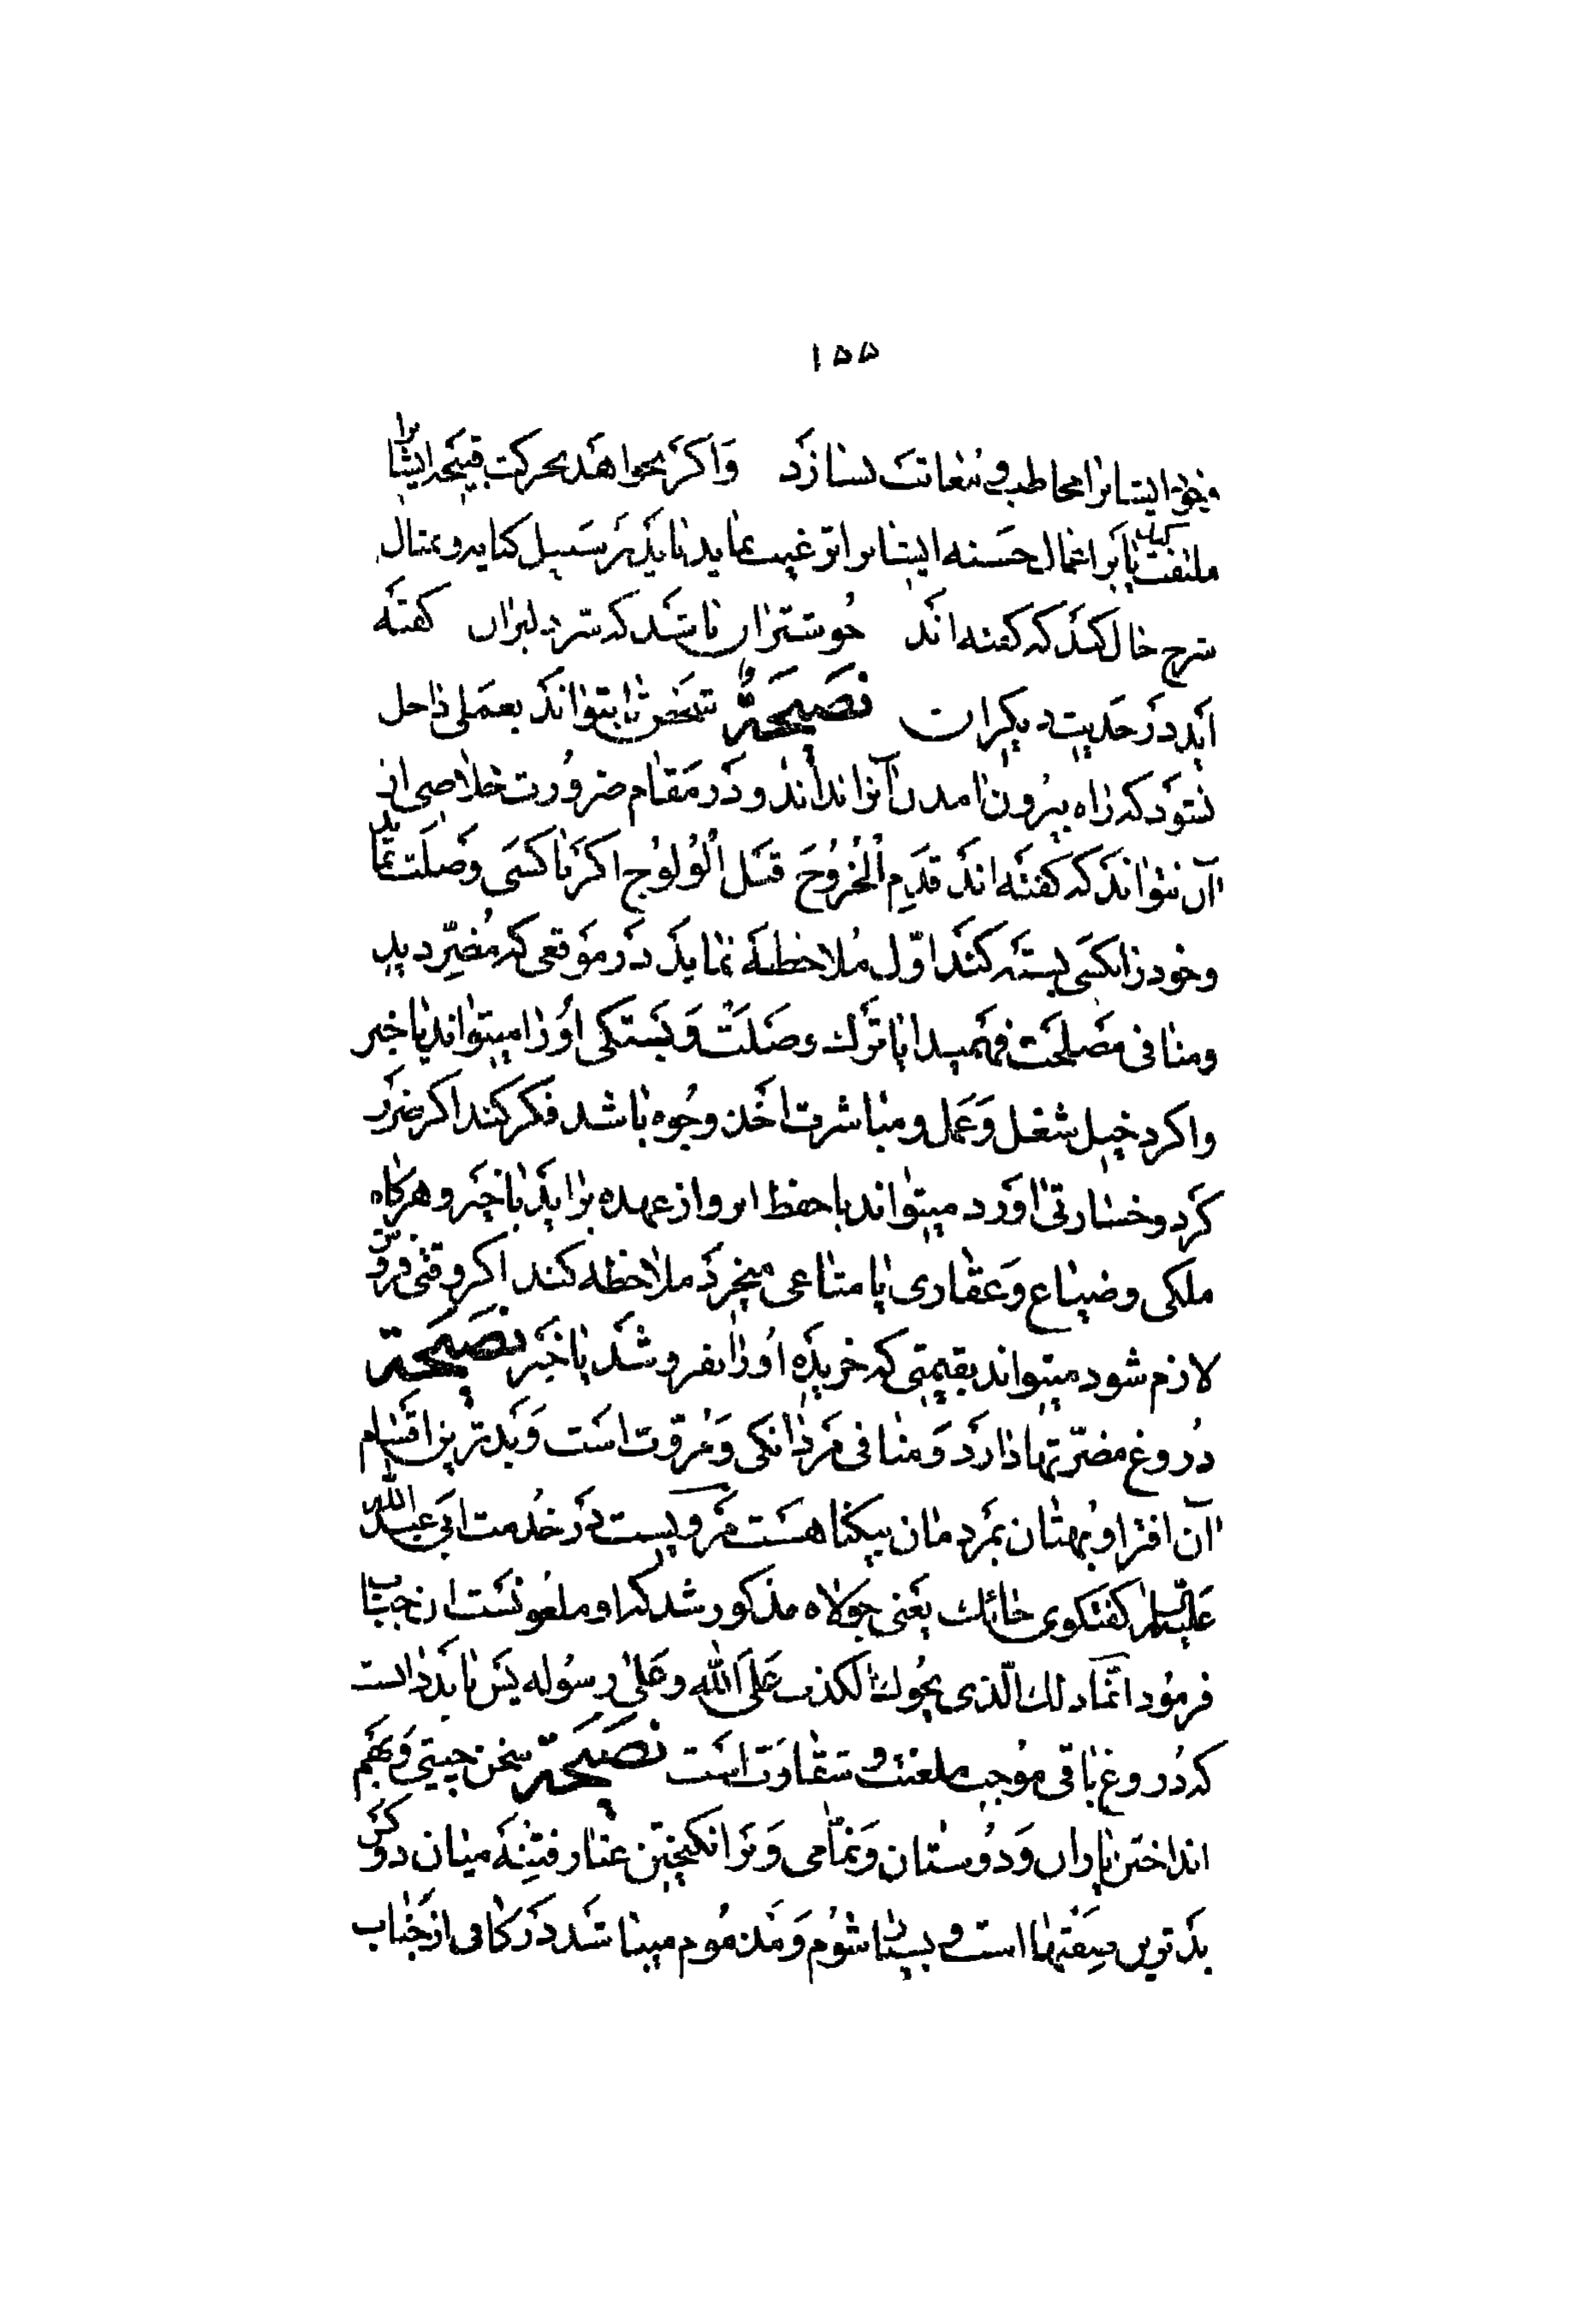 ۱۵۵
ایشانرا مخاطب و معاتب نسازد و اکر بخواهد بحرکت قبیحه ایشانرا
ملتفت کند یا بر اعمال حسنه ایشانرا ترغیب نماید باید بر سبیل کنایه و مثال
شرح حال کند که کفته‌اند خوشتر ان باشد که سر دلبران کفته
آید در حدیث دیکران نصیحة شخص تا بتواند بعملی داخل
نشود که راه بیرون امدن آنرا نداند و در مقام ضرورت خلاصی از
آن نتواند که کفته‌اند قدم الخروج قبل الولوج اکر با کسی وصلت نماید
و خود را بکسی بسته کند اول ملاحظه نماید در موقعی که مضر دید
و منافی مصلحت فهمید ایا ترک وصلت و بستکی او را میتواند یا خیر
و اکر دخیل شغل و عمل و مباشرت اخذ وجوه باشد فکر کند اکر ضرر
کرد و خسارتی اورد میتواند با حفظ ابرو از عهده براید یا خیر و هرکاه
ملکی و ضیاع و عقاری یا متاعی میخرد ملاحظه کند اکر وقتی فروختن
لازم شود میتواند بقیمتی که خریده او را بفروشد یا خیر نصیحة
دروغ مضرتها دارد و منافی مردانکی و مروت است و بدترین اقسام
آن افترا و بهتان بمردمان بیکناهست مرویست در خدمت ابی عبدالله
علیه السلام کفتکوی حائک یعنی جولاه مذکور شد که او ملعونست ان جناب
فرمود انما ذلک الذی یحوک الکذب علی الله و علی رسوله پس باید دانست
که دروغ بافی موجب ملعنت و شقاوت است نصیحة سخن چینی و بهم
انداختن یاران و دوستان و نمامی و برانکیختن غبار فتنه میان دو کس
بدترین صفتها است و بسیار شوم و مذموم میباشد در کافی از جناب